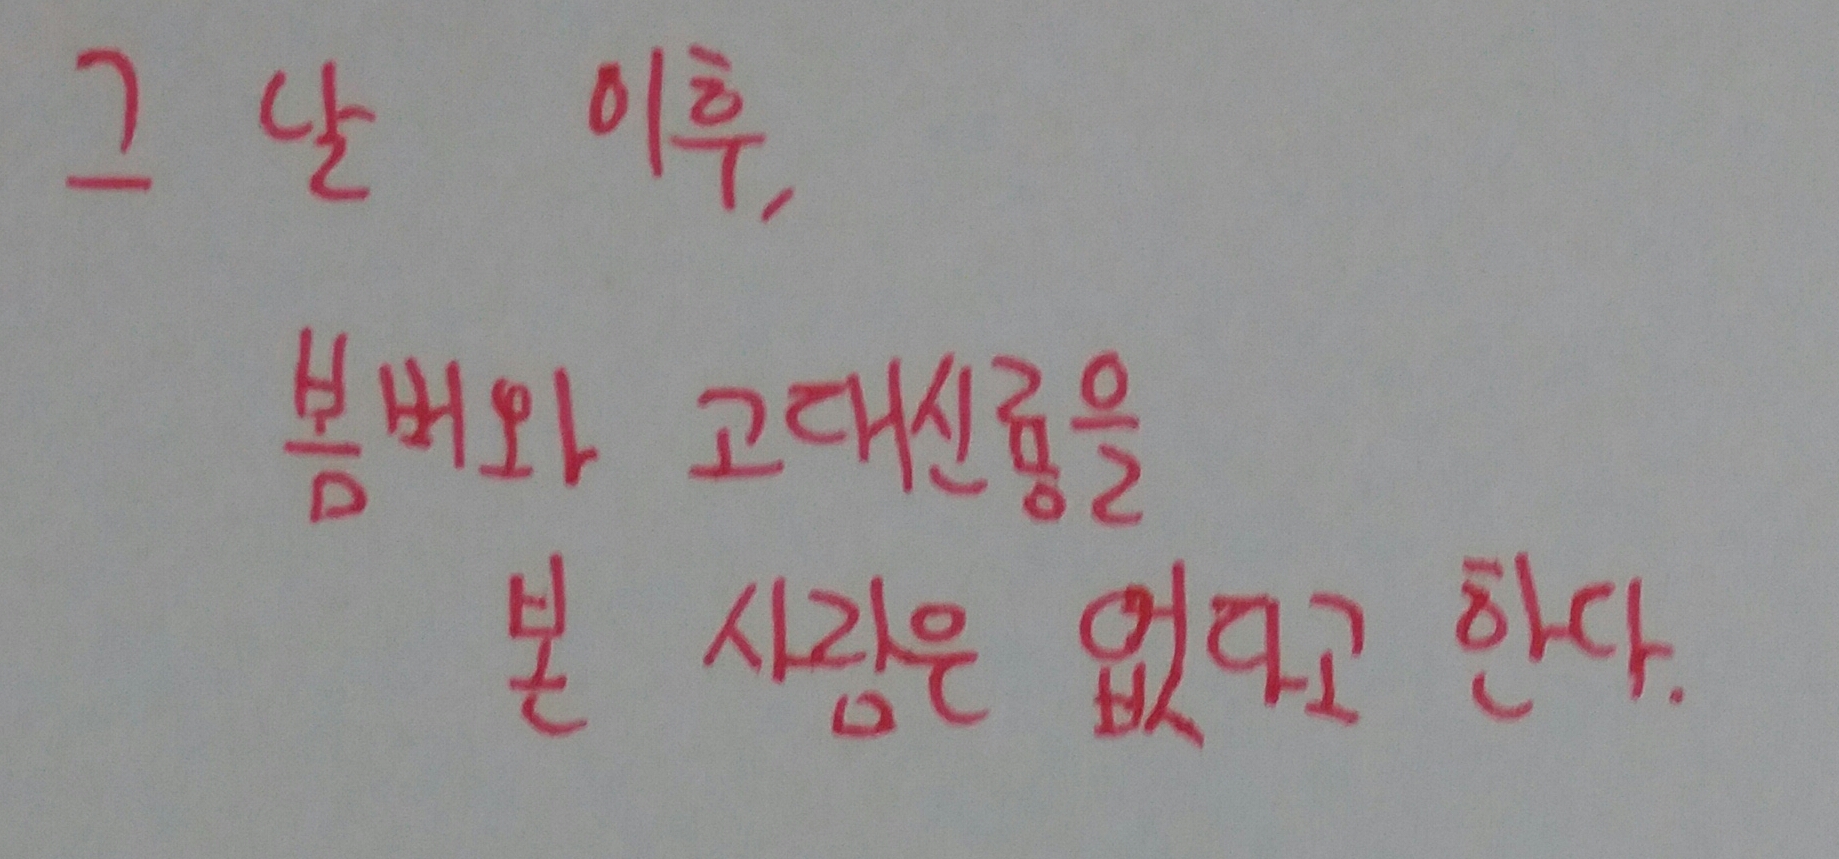 그 날 이후,
봄버와 고대신룡을
본 사람은 없다고 한다.